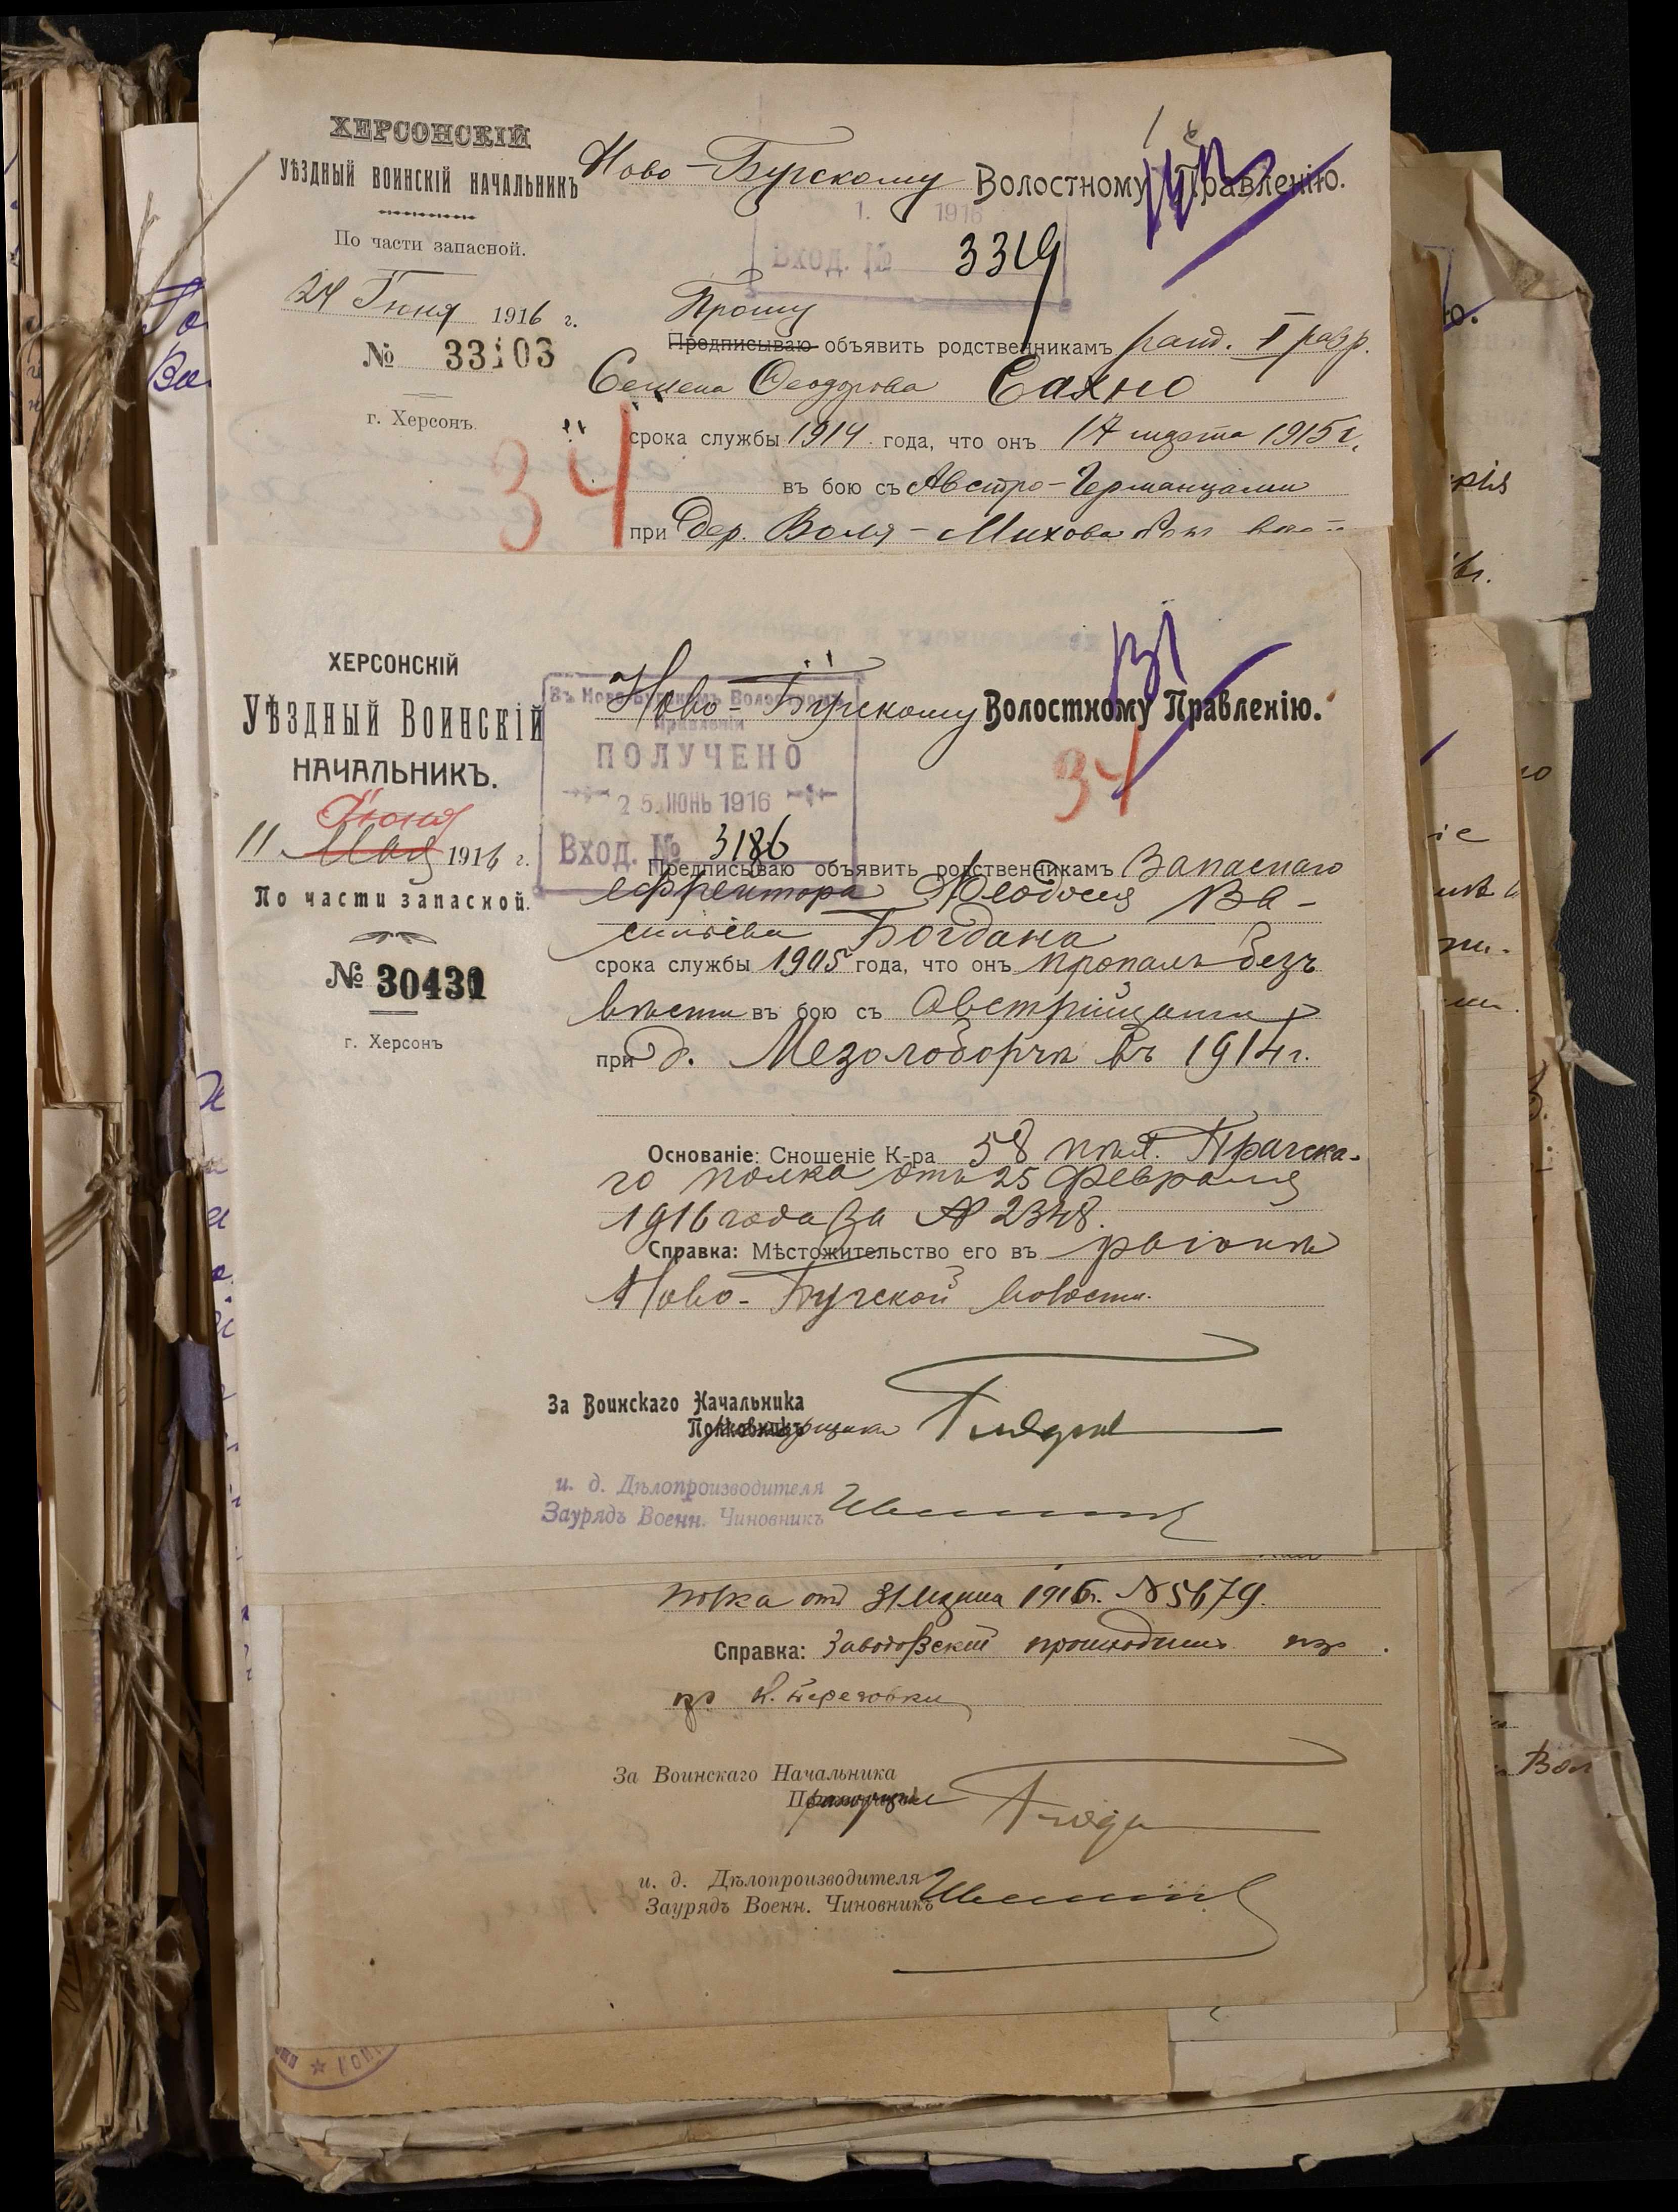 ХЕРСОНСКІЙ
УѢЗДНЫЙ ВОИНСКІЙ НАЧАЛЬНИКЪ
По части запасной.
24 Іюня 1916 г.
№ 33103
г. Херсонъ.
Ново-Бугскому Волостному Правленію.
1. 1916
Вход. № 3319
Прошу
Предписываю объявить родственникамъ рат. I разр.
Семена Феодорова Сахно
срока службы 1914 года, что онъ 17 марта 1915 г.
въ бою съ Австро-Германцами
при дер. Воля-Михова
34
ХЕРСОНСКІЙ
УѢЗДНЫЙ ВОИНСКІЙ
НАЧАЛЬНИКЪ.
Іюня
11 Мая 1916 г.
По части запасной.
№ 30431
г. Херсонъ
Ново-Бугскому Волостному Правленію.
34
Въ Ново-Бугскомъ Волостномъ
Правленіи
ПОЛУЧЕНО
25 ИЮНЬ 1916
Вход. № 3186
Предписываю объявить родственникамъ Запаснаго
ефрейтора Феодосія Ва-
сильева Богдана
срока службы 1905 года, что онъ пропалъ безъ
вѣсти въ бою съ Австрійцами
при д. Мезолаборчъ въ 1914 г.
Основаніе: Сношеніе К-ра 58 пѣх. Прагска-
го полка отъ 25 Февраля
1916 года за № 2348.
Справка: Мѣстожительство его въ раіонѣ
Ново-Бугской волости.
За Воинскаго Начальника
Полковникъ
и. д. Дѣлопроизводителя
Заурядъ Военн. Чиновникъ
полка отъ 31 1916 г. № 5679.
Справка: происходитъ изъ
За Воинскаго Начальника
и. д. Дѣлопроизводителя
Заурядъ Военн. Чиновникъ